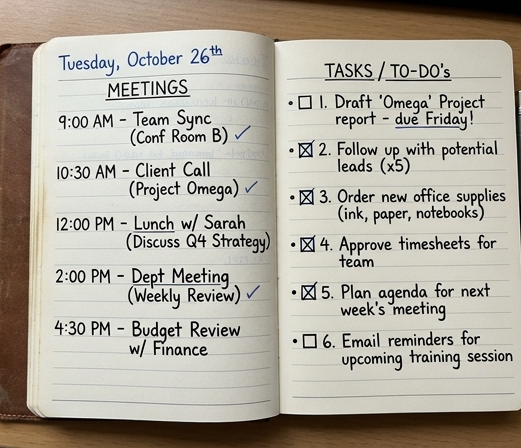 Tuesday, October 26th
MEETINGS
9:00 AM – Team Sync
(Conf Room B) ✓
10:30 AM – Client Call
(Project Omega) ✓
12:00 PM – Lunch w/ Sarah
(Discuss Q4 Strategy)
2:00 PM – Dept Meeting
(Weekly Review) ✓
4:30 PM – Budget Review
w/ Finance
TASKS / TO-DO's
• ☐ 1. Draft 'Omega' Project
report – due Friday!
• ☒ 2. Follow up with potential
leads (x5)
• ☒ 3. Order new office supplies
(ink, paper, notebooks)
• ☒ 4. Approve timesheets for
team
• ☒ 5. Plan agenda for next
week's meeting
• ☐ 6. Email reminders for
upcoming training session